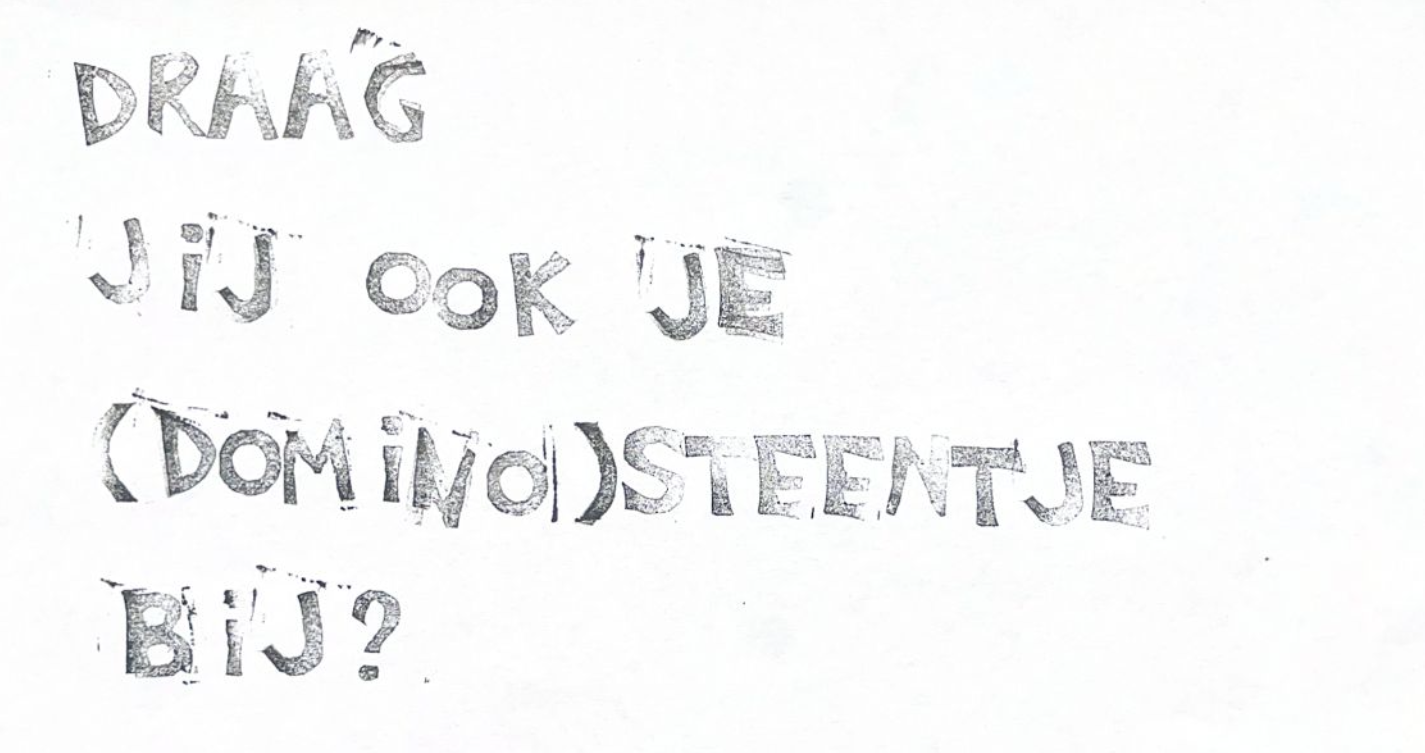 DRAAG
JiJ OOK JE
(DOMiNO)STEENTJE
BiJ?